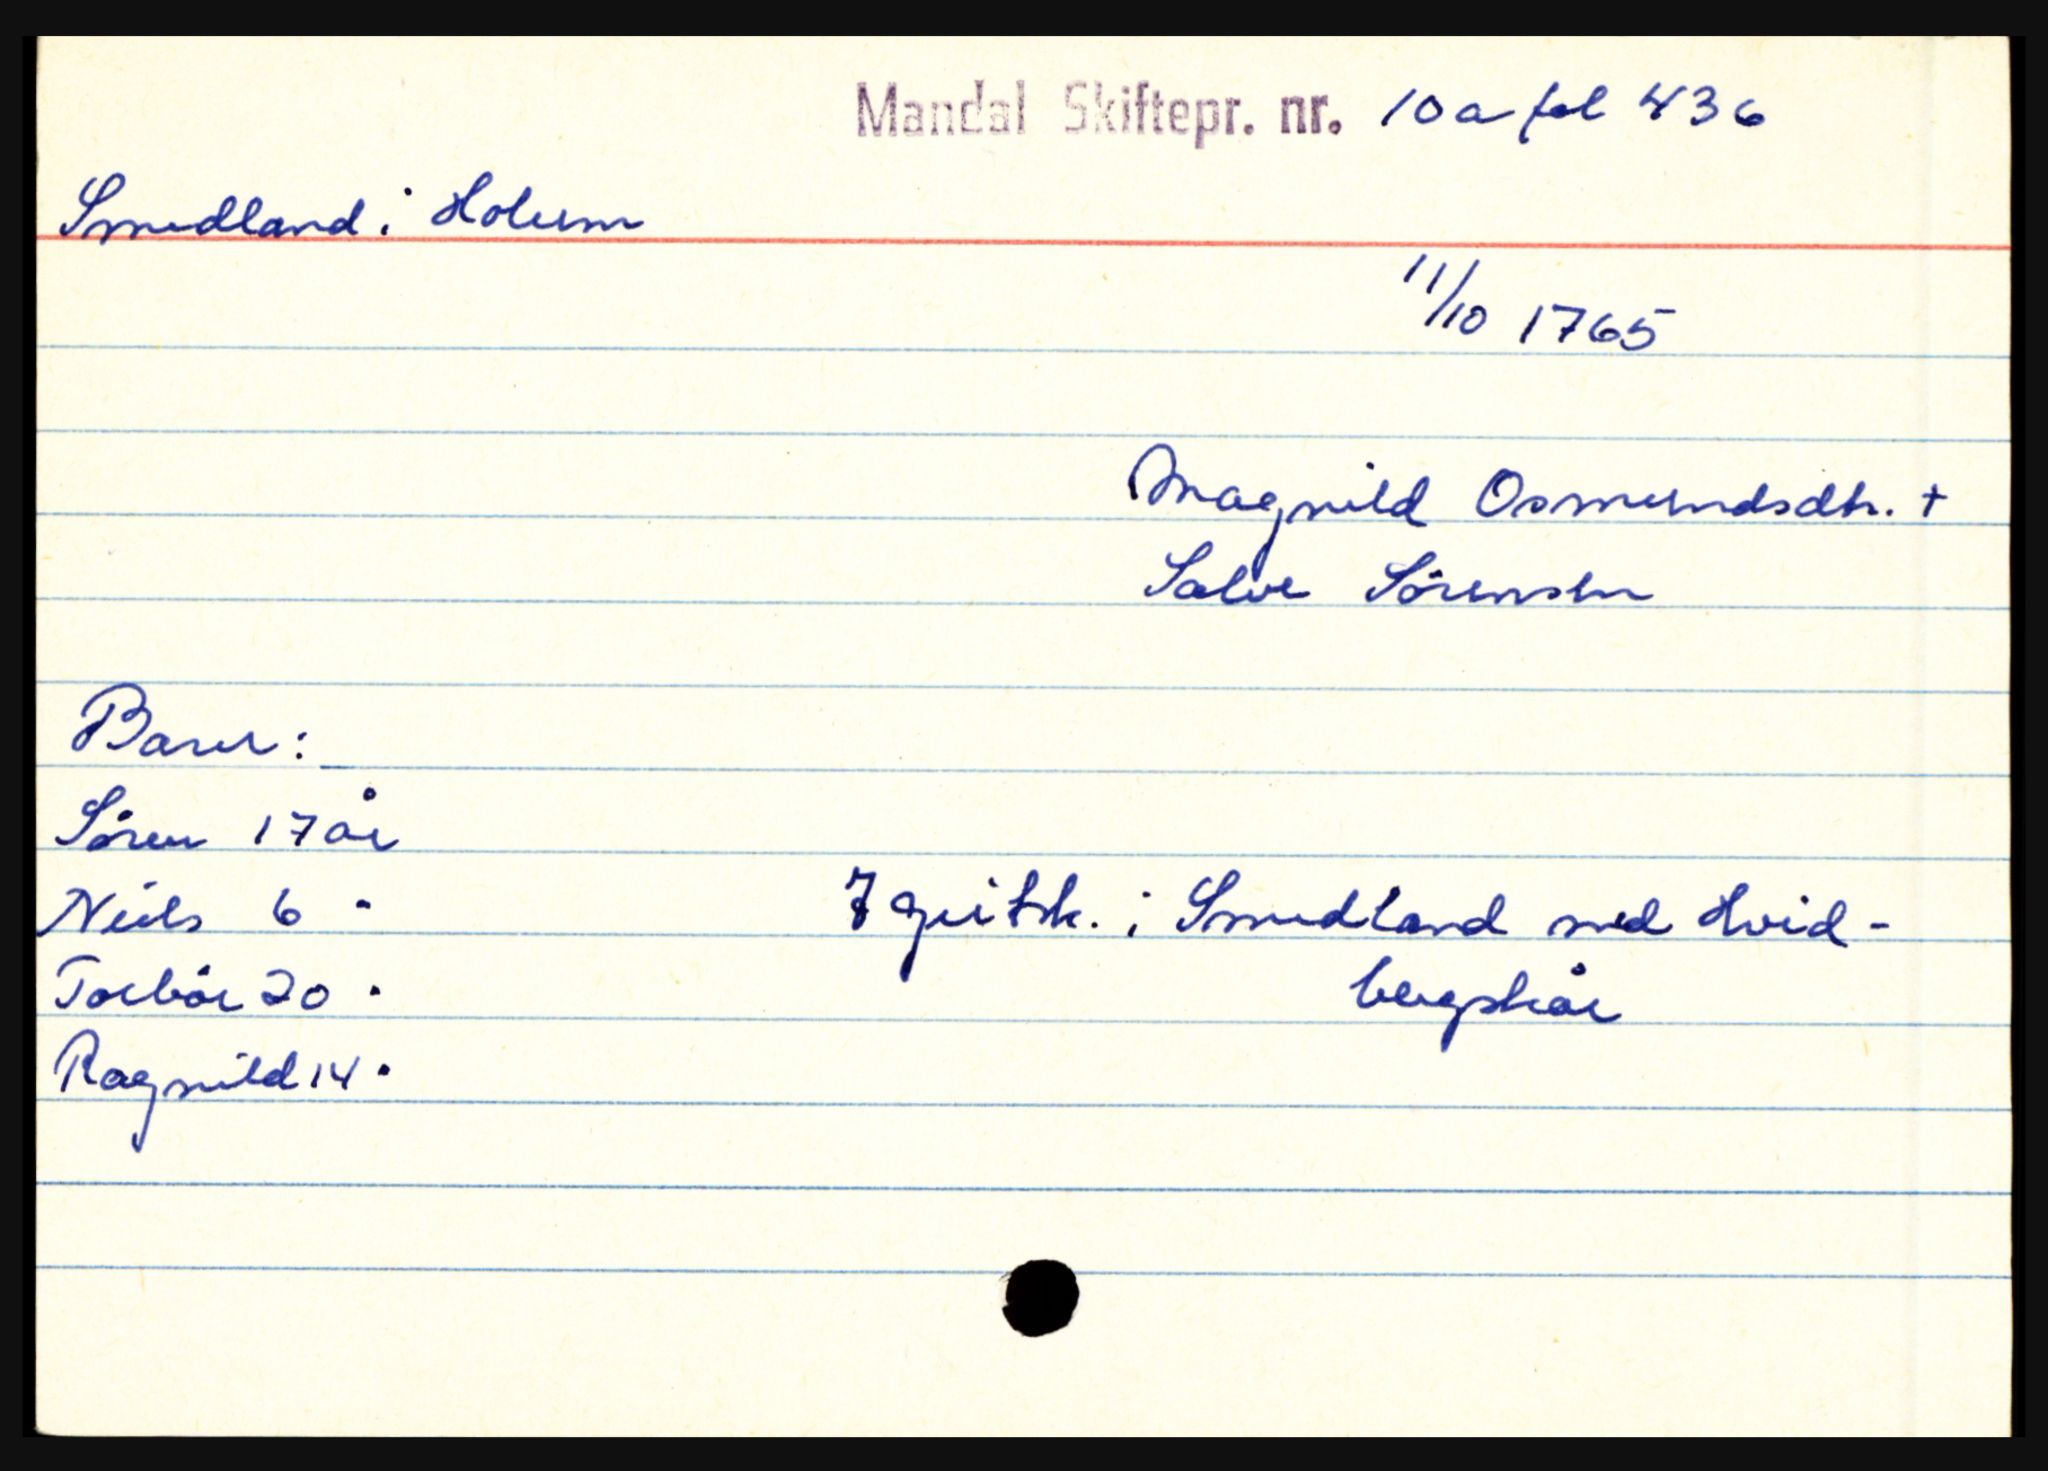 Mandal Skiftepr. nr. 10a fol 436
Smedland i Holum
11/10 1765
Magnild Osmundsdtr. +
Salve Sørensen
Barn:
Søren 17 år
Niels 6 "
Torbor 20 "
Ragnild 14 "
7 geitsk. i Smedland med Hvid-
bergskår